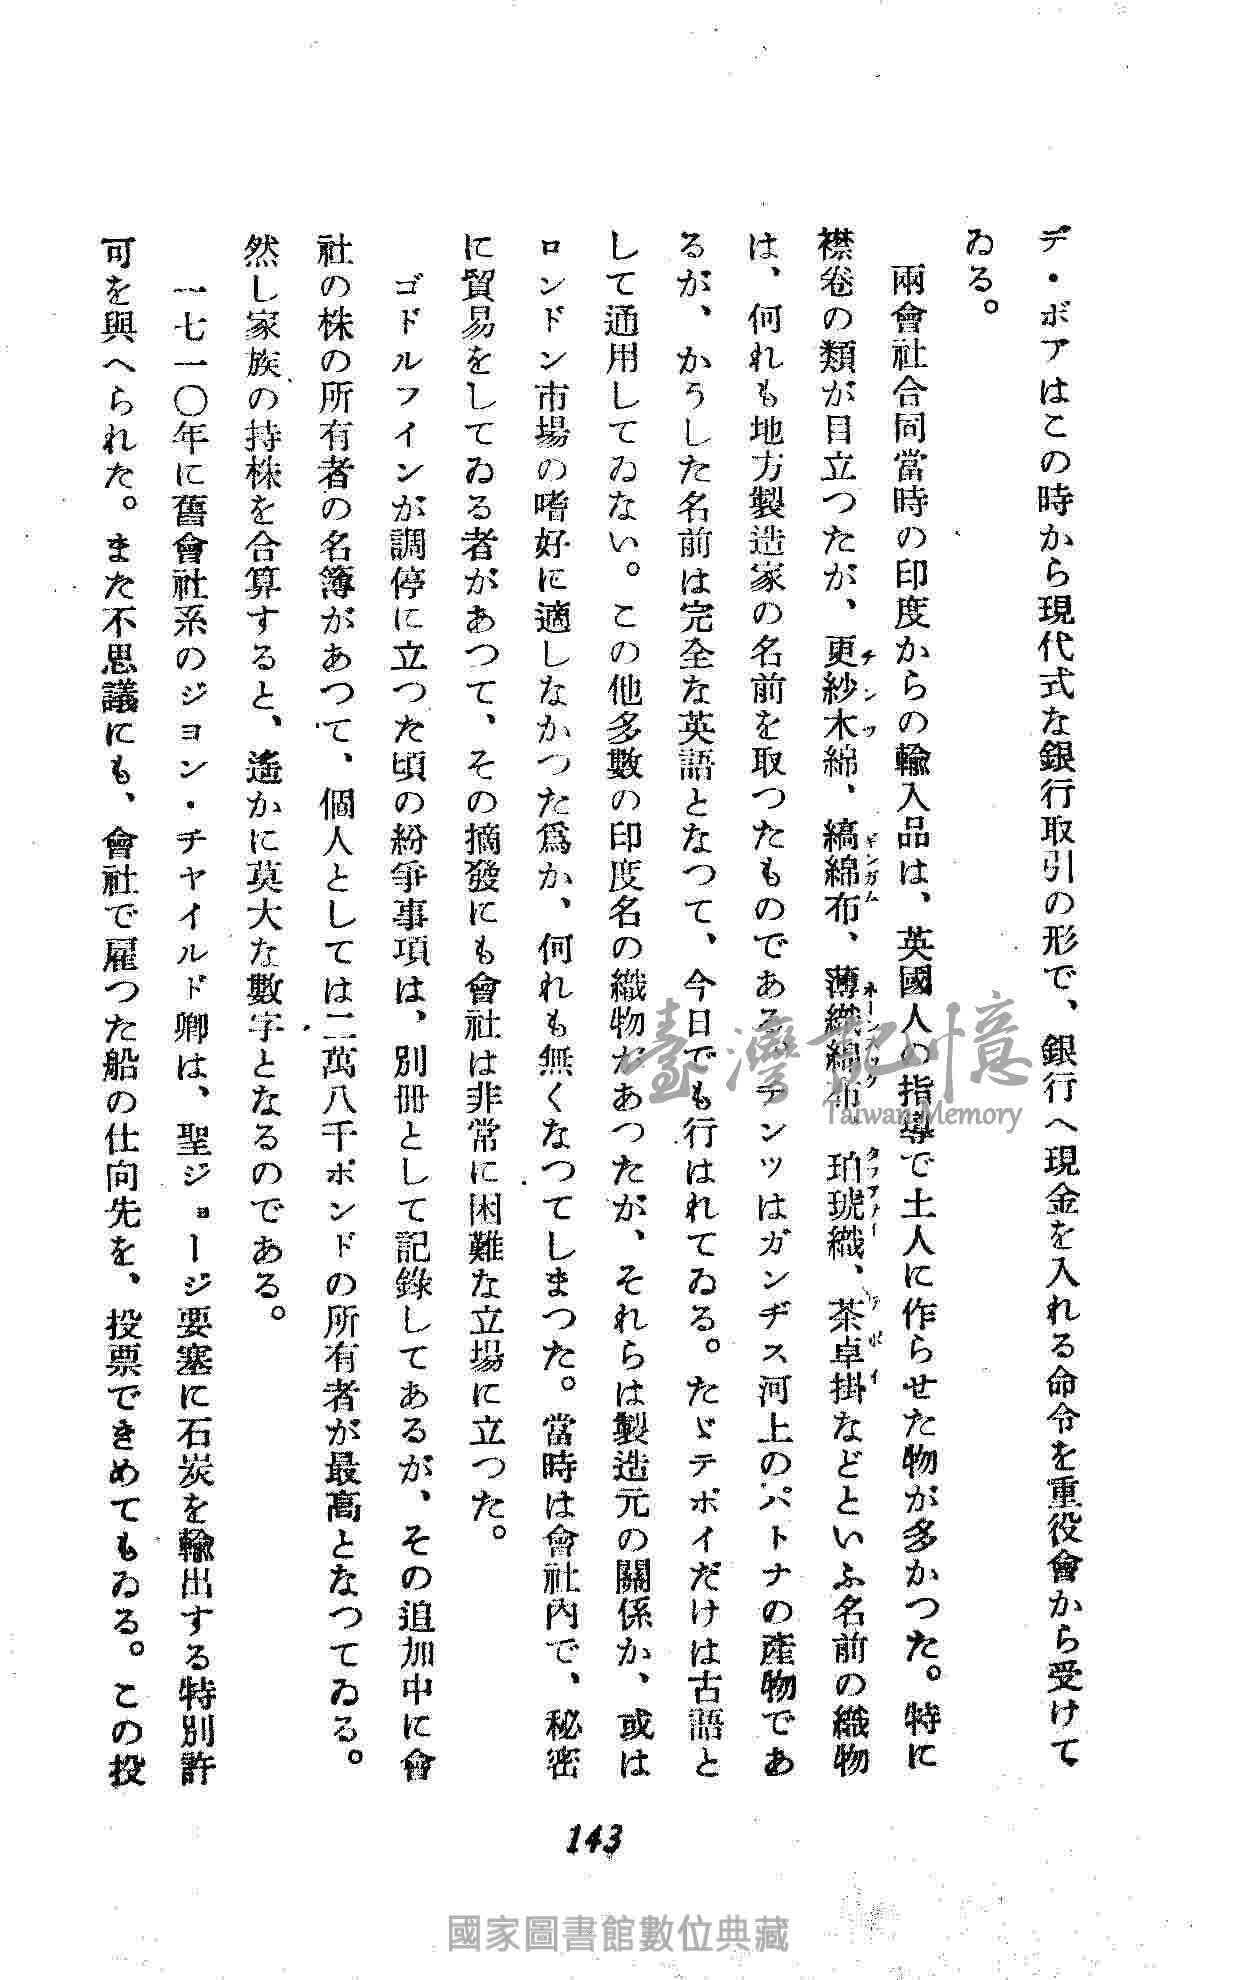 デ・ボアはこの時から現代式な銀行取引の形で、銀行へ現金を入れる命令を重役會から受けて
ゐる。
兩會社合同當時の印度からの輸入品は、英國人の指導で土人に作らせた物が多かつた。特に
襟卷の類が目立つたが、更紗木綿、縞綿布、薄織綿布、珀琥織、茶卓掛などといふ名前の織物
チンツ
ギンガム
ネーンスック
タファター
テポイ
は、何れも地方製造家の名前を取つたものである。チンツはガンヂス河上のパトナの產物であ
るが、かうした名前は完全な英語となつて、今日でも行はれてゐる。たゞテポイだけは古語と
して通用してゐない。この他多數の印度名の織物があつたが、それらは製造元の關係か、或は
ロンドン市場の嗜好に適しなかつた爲か、何れも無くなつてしまつた。當時は會社內で、秘密
に貿易をしてゐる者があつて、その摘發にも會社は非常に困難な立場に立つた。
ゴドルフインが調停に立つた頃の紛爭事項は、別冊として記錄してあるが、その追加中に會
社の株の所有者の名簿があつて、個人としては二萬八千ポンドの所有者が最高となつてゐる。
然し家族の持株を合算すると、遙かに莫大な數字となるのである。
一七一〇年に舊會社系のジヨン・チヤイルド卿は、聖ジョージ要塞に石炭を輸出する特別許
可を與へられた。また不思議にも、會社で雇つた船の仕向先を、投票できめてもゐる。この投
143
臺灣記憶
Taiwan Memory
國家圖書館數位典藏